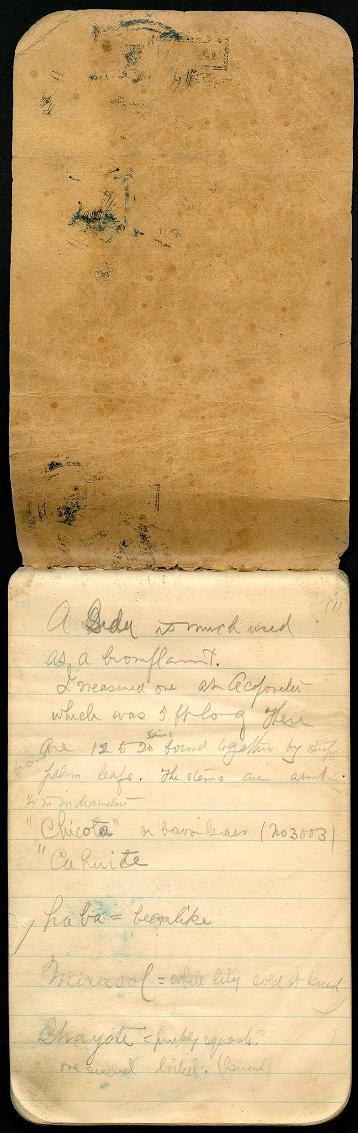 (1)
A Sida is much used
as a broom plant.
I measured one at
which was 5 ft long There
are 12 to 20 stems bound together by strips
from palm leafs. The stems are about
4 in in diameter
"Chicota" or broom grass (no 3003)
"Cahuite
haba = beanlike
Mirasol = white lily sold at
Chayote = prickly squash?
one seeded boiled.